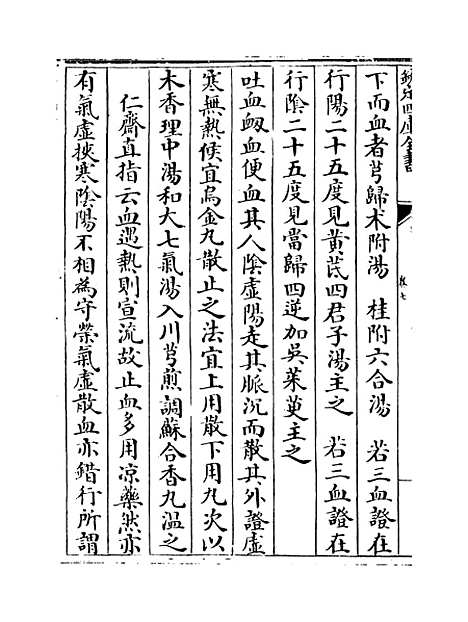 欽定四庫全書
卷七
下而血者芎歸术附湯　桂附六合湯　若三血證在
行陽二十五度見黃芪四君子湯主之　若三血證在
行陰二十五度見當歸四逆加吳茱萸主之
吐血衂血便血其人陰虛陽走其脈沉而散其外證虛
寒無熱候宜烏金丸散止之法宜上用散下用丸次以
木香理中湯和大七氣湯入川芎煎調蘇合香丸温之
仁齋直指云血遇熱則宣流故止血多用凉藥然亦
有氣虛挾寒陰陽不相為守榮氣虛散血亦錯行所謂